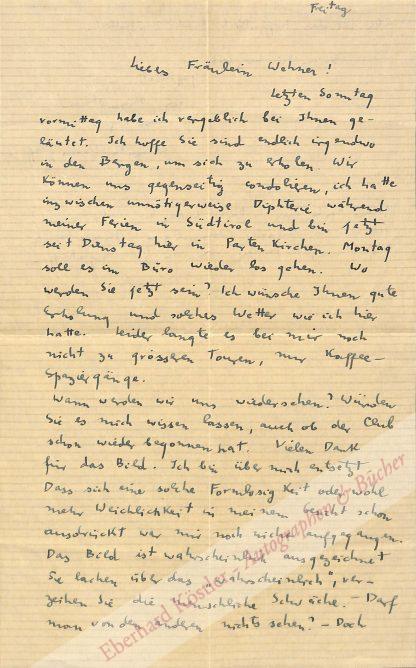 Freitag
Liebes Fräulein Wehner!
Letzten Sonntag
vormittag habe ich vergeblich bei Ihnen ge-
läutet. Ich hoffe Sie sind endlich irgendwo
in den Bergen, um sich zu erholen. Wir
können uns gegenseitig condolieren, ich hatte
inzwischen unnötigerweise Diphterie während
meiner Ferien in Südtirol und bin jetzt
seit Dienstag hier in Partenkirchen. Montag
soll es im Büro wieder los gehen. Wo
werden Sie jetzt sein? Ich wünsche Ihnen gute
Erholung und solches Wetter wie ich hier
hatte. Leider langte es bei mir noch
nicht zu grösseren Touren, nur Kaffee-
spaziergänge.
Wann werden wir uns wiedersehen? Würden
Sie es mich wissen lassen, auch ob der Club
schon wieder begonnen hat. Vielen Dank
für das Bild. Ich bin über mich entsetzt
Dass sich eine solche Formlosigkeit oder wohl
mehr Weichlichkeit in meinem Gesicht schon
ausdrückt war mir noch nicht aufgegangen.
Das Bild ist wahrscheinlich ausgezeichnet
Sie lachen über das "wahrscheinlich", ver-
zeihen Sie die menschliche Schwäche. – Darf
man von den anderen nichts sehen? – Doch
Eberhard Köstler - Autographen & Bücher